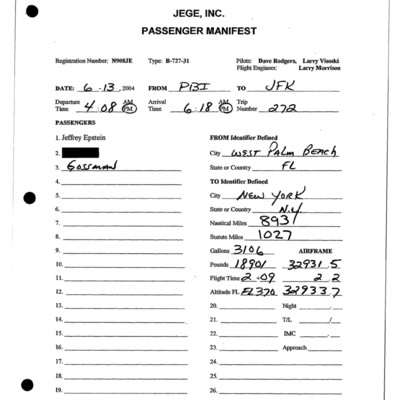 JEGE, INC.
PASSENGER MANIFEST
Registration Number: N908JE Type: B-727-31 Pilots: Dave Rodgers, Larry Visoski
Flight Engineer: Larry Morrison
DATE: 6-13, 2004 FROM PBI TO JFK
Departure Time 4:08 AM PM Arrival Time 6:18 AM PM Trip Number 272
PASSENGERS
1. Jeffrey Epstein FROM Identifier Defined
2. City WEST PALM BEACH
3. GOSSMAN State or Country FL
4. TO Identifier Defined
5. City NEW YORK
6. State or Country N.Y
7. Nautical Miles 893
8. Statute Miles 1027
9. Gallons 3106 AIRFRAME
10. Pounds 18901 32931.5
11. Flight Time 2+09 2.2
12. Altitude FL FL370 32933.7
13. 20. Night
14. 21. T/L /
15. 22. IMC
16. 23. Approach
17. 24.
18. 25.
19. 26.